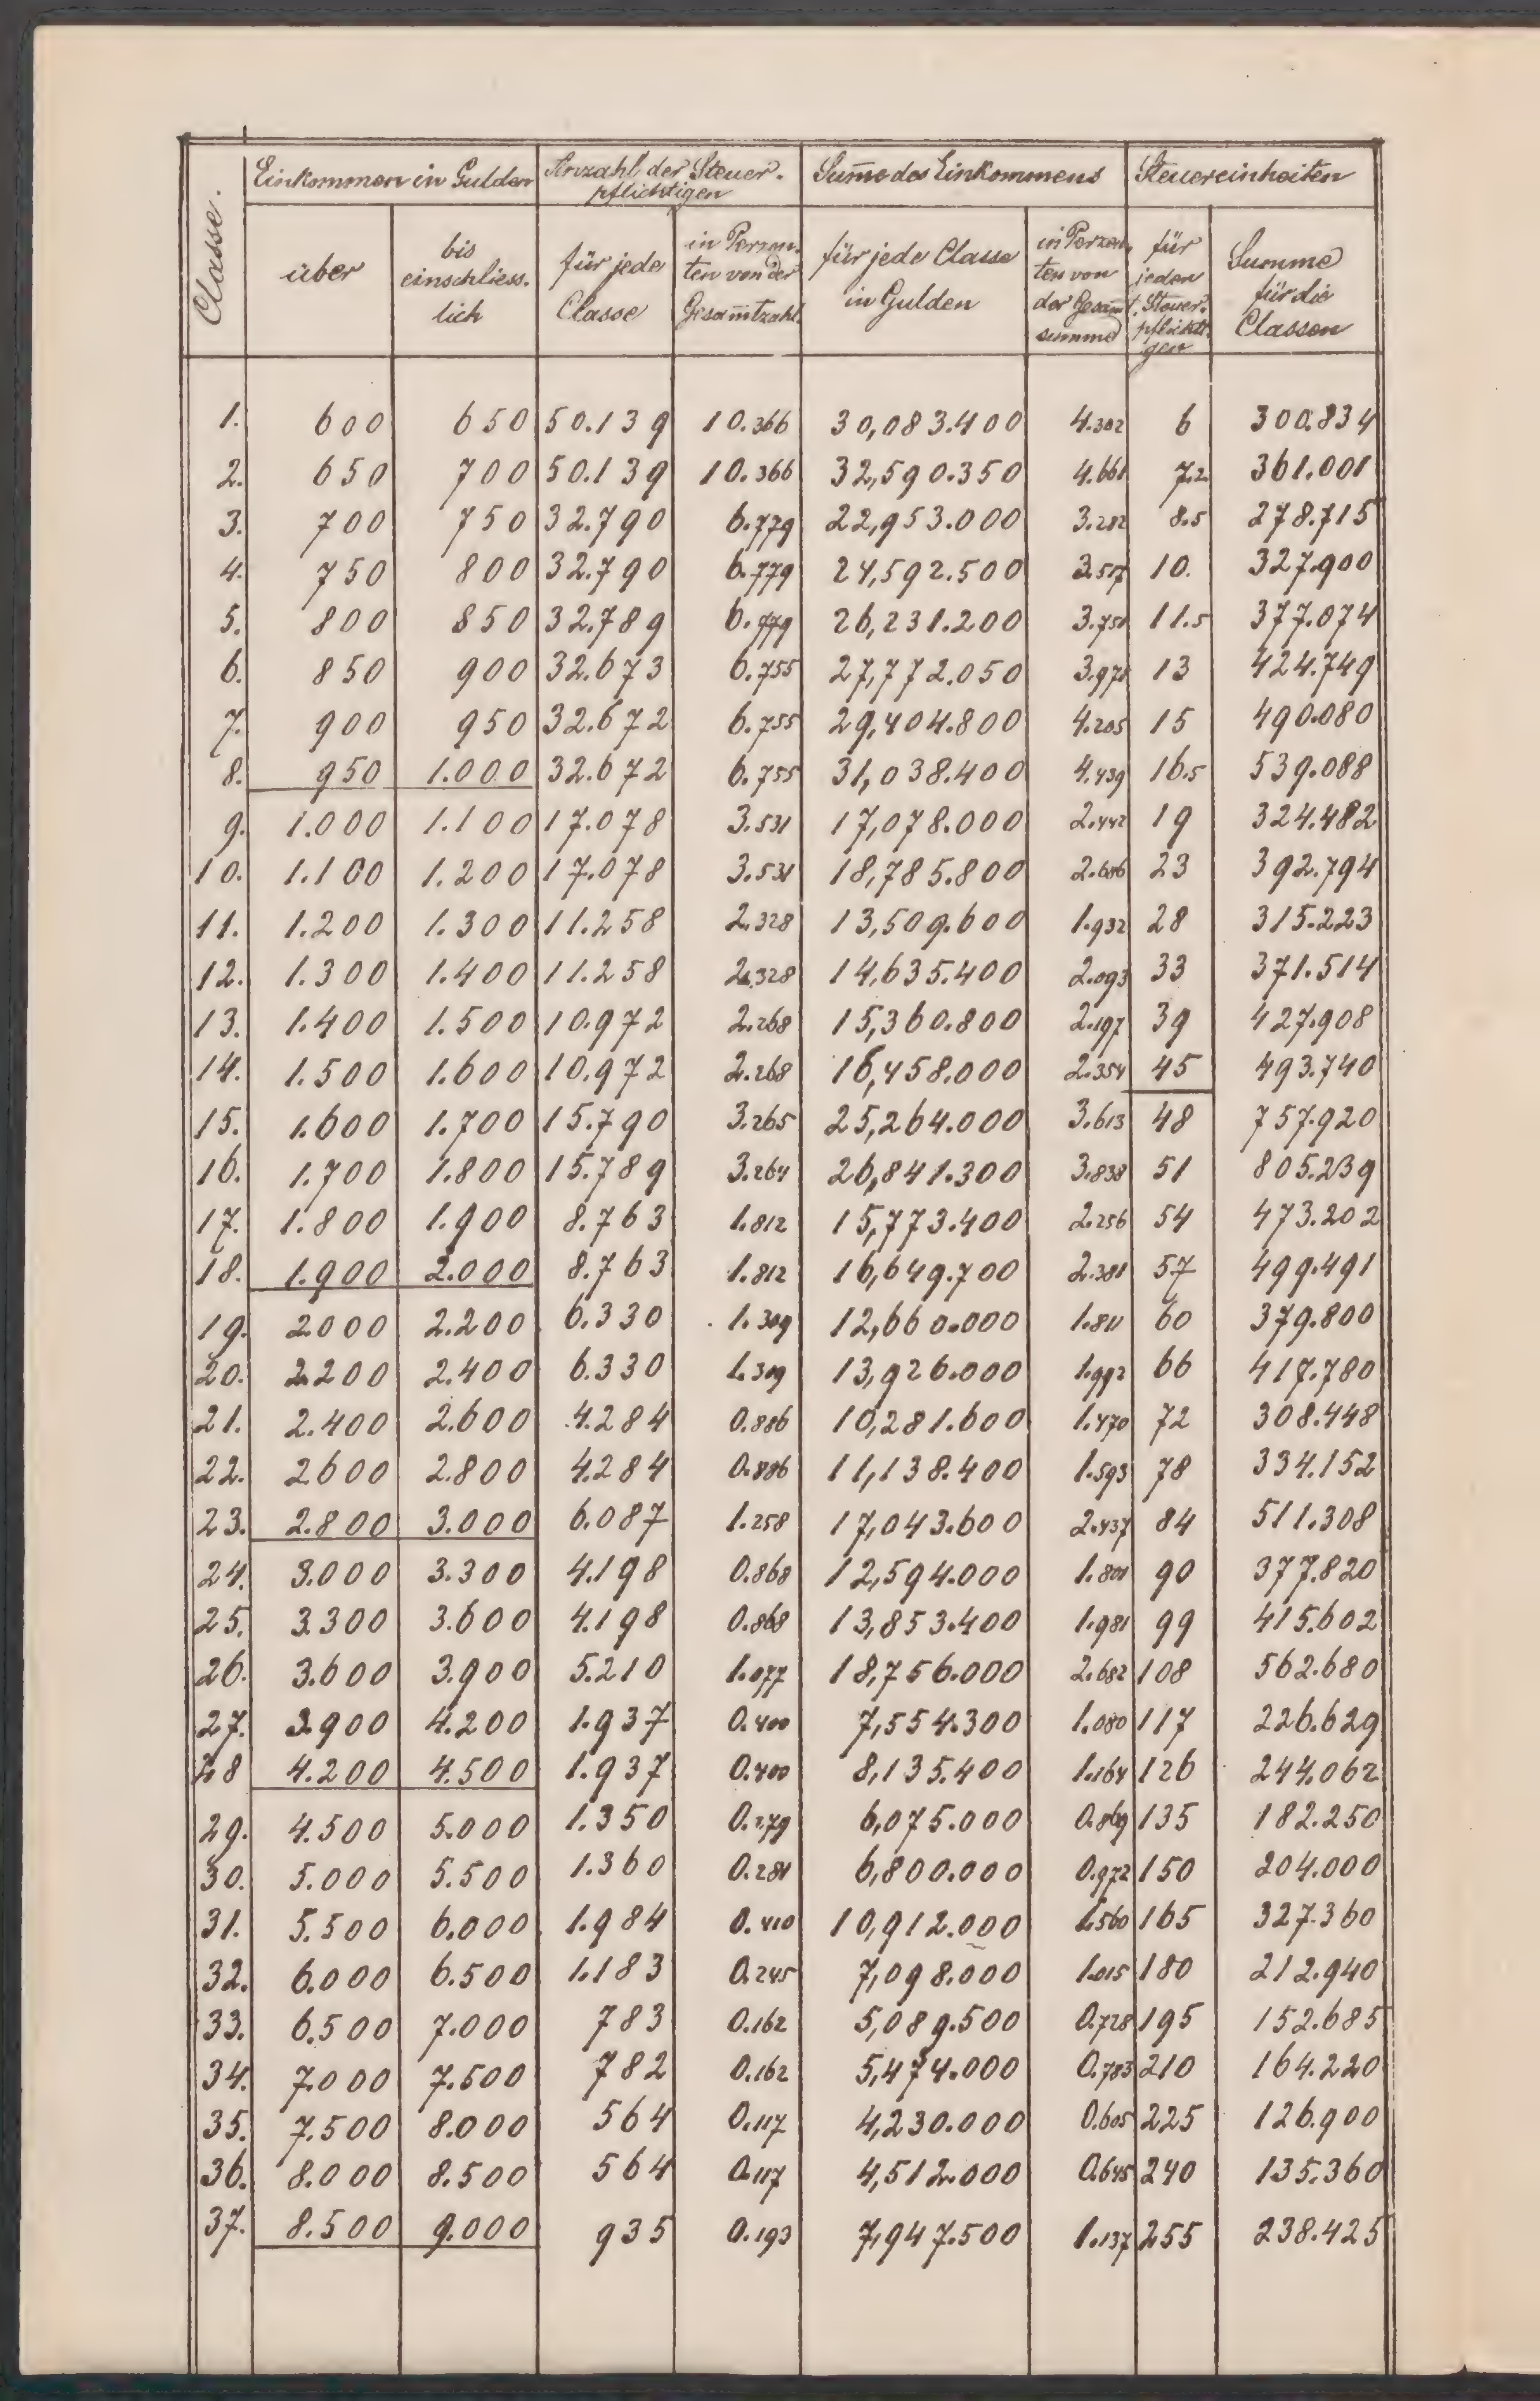 Classe.
Einkommen in Gulden
Anzahl der Steuer-
pflichtigen
Sum̄e des Einkommens
Steuereinheiten
über
bis
einschliess-
lich
für jede
Classe
in Perzen-
ten von der
Gesam̄tzahl
für jede Classe
in Gulden
in Perzen-
ten von
der Gesam̄t-
summe
für
jeden
Steuer-
pflichti-
gen
Summe
für die
Classen
1. 600 650 50.139 10.366 30,083.400 4.302 6 300.834
2. 650 700 50.139 10.366 32,590.350 4.661 7.2 361.001
3. 700 750 32.790 6.779 22,953.000 3.282 8.5 278.715
4. 750 800 32.790 6.779 24,592.500 3.517 10. 327.900
5. 800 850 32.789 6.779 26,231.200 3.751 11.5 377.074
6. 850 900 32.673 6.755 27,772.050 3.971 13 424.749
7. 900 950 32.672 6.755 29,404.800 4.205 15 490.080
8. 950 1.000 32.672 6.755 31,038.400 4.439 16.5 539.088
9. 1.000 1.100 17.078 3.531 17,078.000 2.442 19 324.482
10. 1.100 1.200 17.078 3.531 18,785.800 2.686 23 392.794
11. 1.200 1.300 11.258 2.328 13,509.600 1.932 28 315.223
12. 1.300 1.400 11.258 2.328 14,635.400 2.093 33 371.514
13. 1.400 1.500 10.972 2.268 15,360.800 2.197 39 427.908
14. 1.500 1.600 10.972 2.268 16,458.000 2.354 45 493.740
15. 1.600 1.700 15.790 3.265 25,264.000 3.613 48 757.920
16. 1.700 1.800 15.789 3.264 26,841.300 3.838 51 805.239
17. 1.800 1.900 8.763 1.812 15,773.400 2.256 54 473.202
18. 1.900 2.000 8.763 1.812 16,649.700 2.381 57 499.491
19. 2.000 2.200 6.330 1.309 12,660.000 1.811 60 379.800
20. 2.200 2.400 6.330 1.309 13,926.000 1.992 66 417.780
21. 2.400 2.600 4.284 0.886 10,281.600 1.470 72 308.448
22. 2600 2.800 4.284 0.886 11,138.400 1.593 78 334.152
23. 2.800 3.000 6.087 1.258 17,043.600 2.437 84 511.308
24. 3.000 3.300 4.198 0.868 12,594.000 1.801 90 377.820
25. 3.300 3.600 4.198 0.868 13,853.400 1.981 99 415.602
26. 3.600 3.900 5.210 1.077 18,756.000 2.682 108 562.680
27. 3.900 4.200 1.937 0.400 7,554.300 1.080 117 226.629
28 4.200 4.500 1.937 0.400 8,135.400 1.164 126 244.062
29. 4.500 5.000 1.350 0.279 6,075.000 0.869 135 182.250
30. 5.000 5.500 1.360 0.281 6,800.000 0.972 150 204.000
31. 5.500 6.000 1.984 0.410 10,912.000 1.560 165 327.360
32. 6.000 6.500 1.183 0.245 7,098.000 1.015 180 212.940
33. 6.500 7.000 783 0.162 5,089.500 0.728 195 152.685
34. 7.000 7.500 782 0.162 5,474.000 0.783 210 164.220
35. 7.500 8.000 564 0.117 4,230.000 0.605 225 126.900
36. 8.000 8.500 564 0.117 4,512.000 0.645 240 135.360
37. 8.500 9.000 935 0.193 7,947.500 1.137 255 238.425